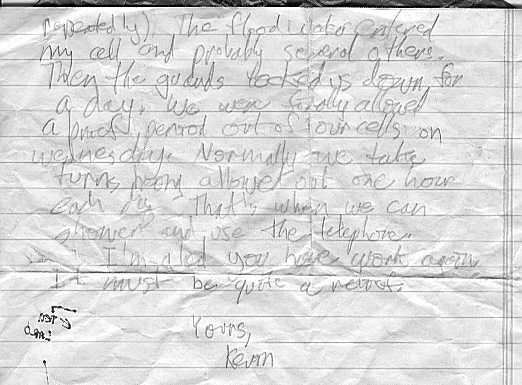 repeatedly). The flood water entered
my cell and probably several others.
Then the guards locked us down for
a day. We were finally allowed
a brief period out of our cells on
wednesday. Normally we take
turns being allowed out one hour
each day. That's when we can
shower and use the telephone.
I'm glad you have work again.
It must be quite a relief.
Yours,
Kevin